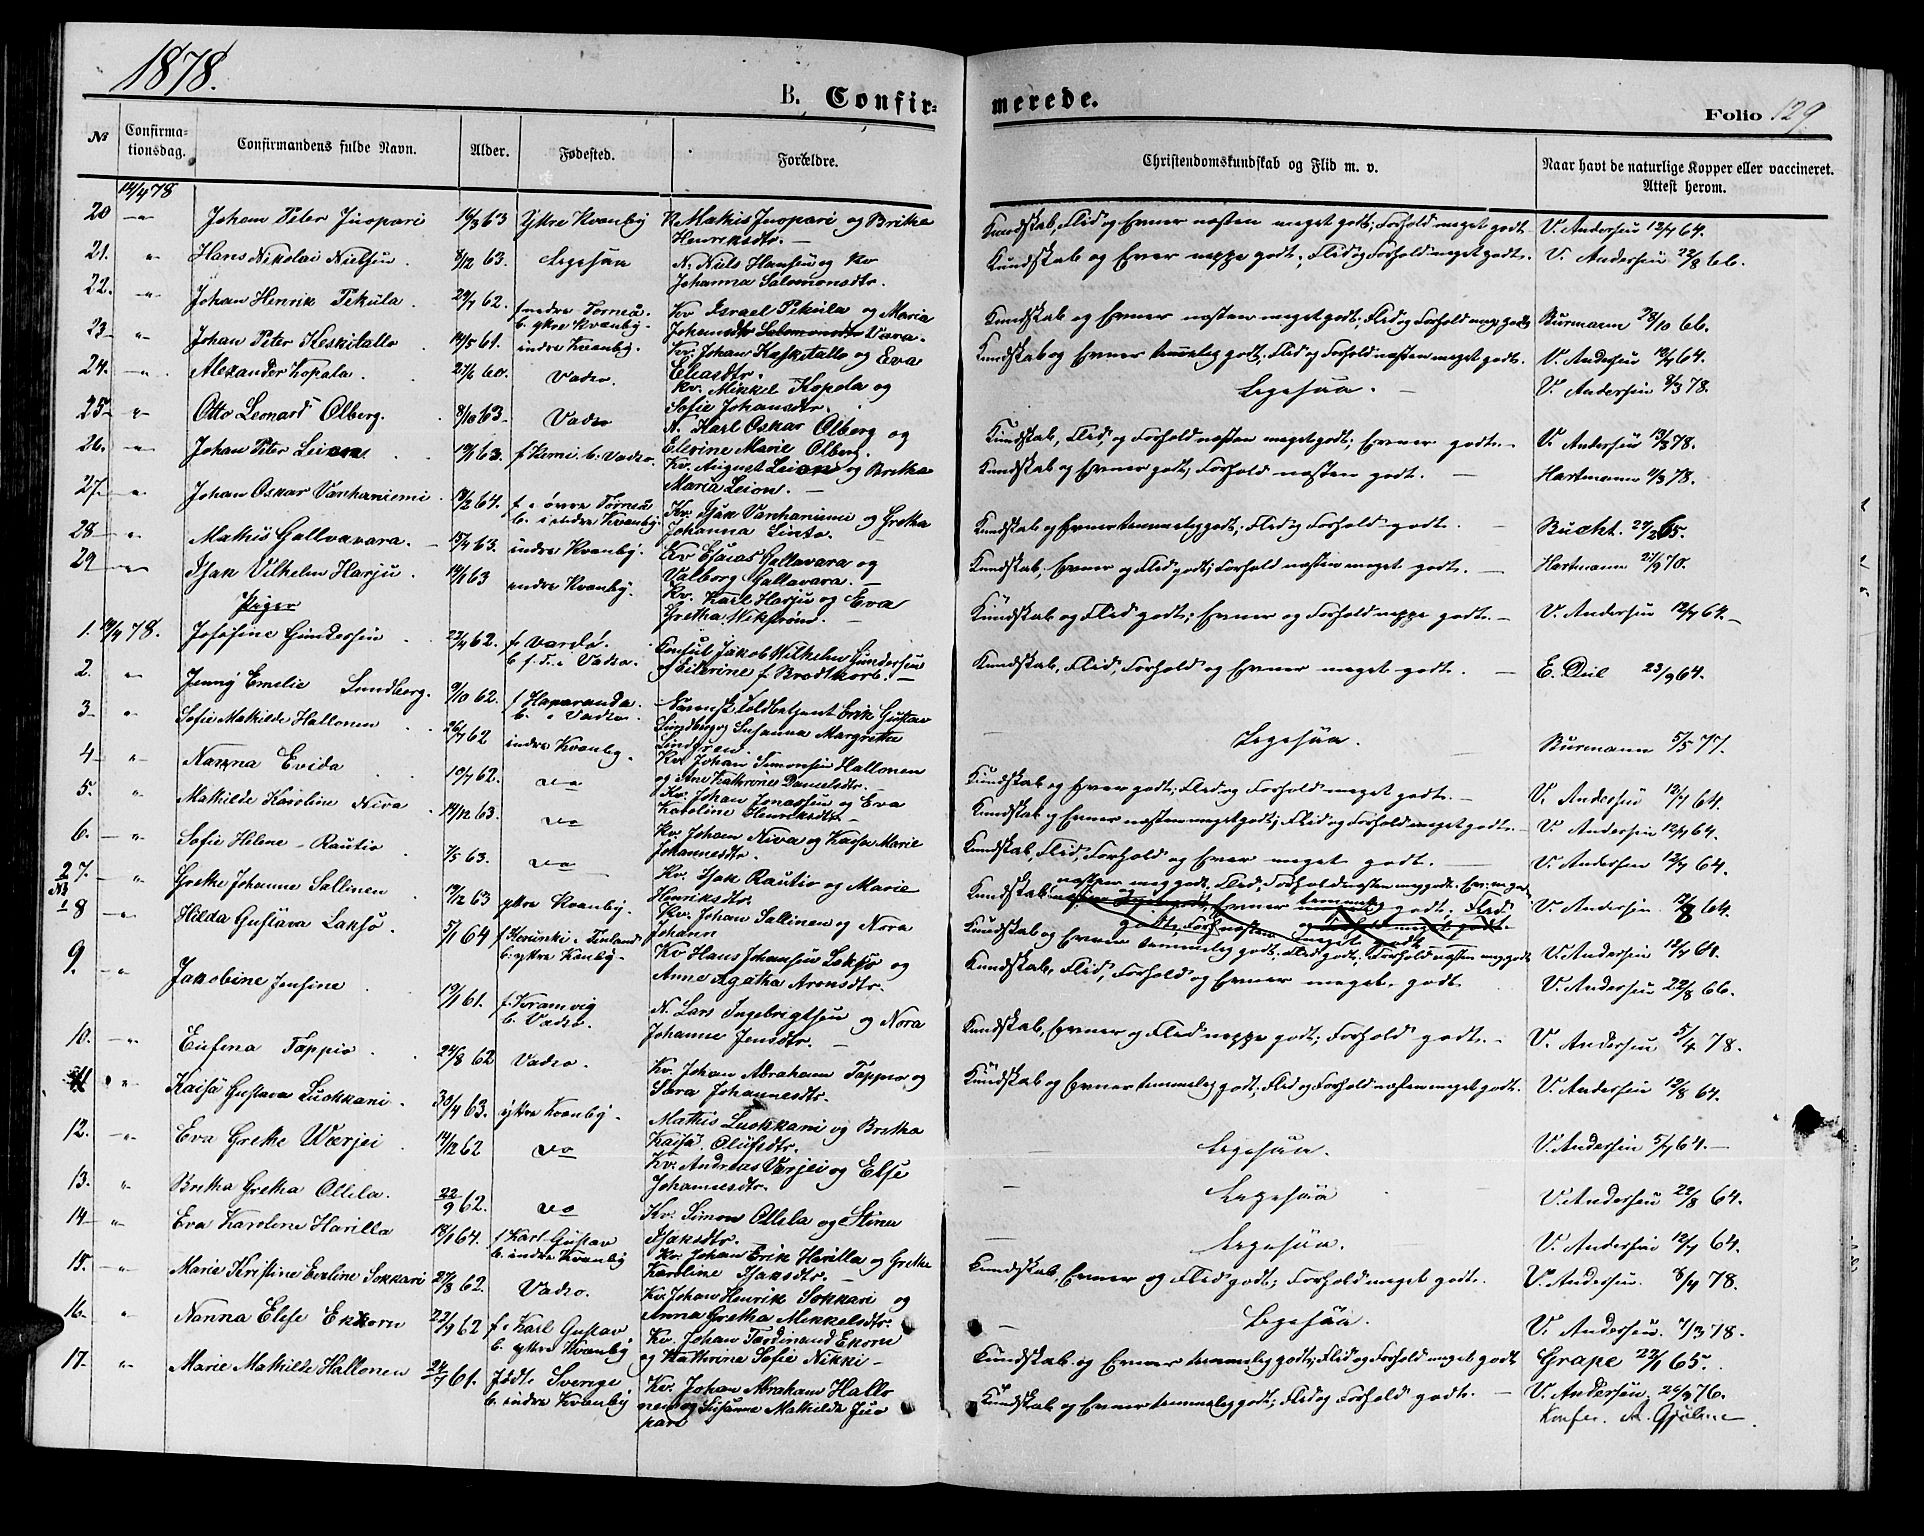 1878.
B. Confir-
merede.
Folio 129
No
Confirmationsdag.
Confirmandens fulde Navn.
Alder.
Fødested.
Forældre.
Christendomskundskab og Flid m. v.
Naar havt de naturlige Kopper eller vaccineret. Attest herom.
14/4 78
20 — " Johan Peter Juopari 16/3 63 Ydre Kvanby N. Mathis Juopari og Britha
Henriksdtr. —
Kundskab, Flid og Evner næsten meget godt; Forhold meget godt. V. Andersen 12/7 64.
21. " Hans Nikolai Nielsen. 8/12 63. N. Niels Hansen og Kv
Johanna Salomonsdtr.
Kundskab og Evner neppe godt; Flid og Forhold meget godt. V. Andersen 22/8 66.
22. — " Johan Henrik Pekula. 29/7 62. f nedre Torneå.
b. ydre Kvanby. Kv Israel Pekula og Maria
Kundskab og Evner næsten meget godt; Flid og Forhold meget godt Burmann 28/10 66.
23 — " Johan Peter Keskitallo 14/5 61. indre Kvanby. Kv. Johan Keskitallo og Eva
Eliasdtr.
Kundskab og Evner temmelig godt; Flid og Forhold næsten meget godt. V. Andersen 12/7 64.
24. — " Alexander Kopala. 27/6 60. Vadsø. Kv. Mikkel Kopala og
Sofie Johansdtr.
V. Andersen 8/3 78.
25 — " Otto Leonard Olberg. 8/10 63. Vadsø N. Karl Oskar Olberg og
Elevine Marie Olberg.
Kundskab, Flid, og Forhold næsten meget godt; Evner godt. — V. Andersen 12/3 78.
26. — " Johan Peter Leion f Kemi b. Vadsø. Kv. August Leion og Britha
Maria Leion. —
Kundskab og Evner godt; Forhold næsten godt. — Hartmann 11/3 78.
27 — " Johan Oskar Vanhaniemi 18/2 64. f. i øvre Torneå
b. i indre Kvanby. Kv. Isak Vanhaniemi og Gretha
Johanna Linto. —
Kundskab og Evner temmelig godt; Flid og Forhold godt. — Bucht. 27/2 65.
28 — " Mathis Gallvavara. 15/4 63. indre Kvanby. Kv Esaias Gallavara og
Valborg Gallavara. —
Kundskab, Evner og Flid godt; Forhold næsten meget godt. — Hartmann 21/9 70.
29 — " Isak Vilhelm Harju. 14/1 63 indre Kvanby. Kv. Karl Harju og Eva
Gretha Wikstrøm. —
Kundskab og Flid godt; Evner og Forhold neppe godt. — V. Andersen 12/7 64 —
Piger
1. 14/4 78. Josefine Gundersen 22/4 62. f Vardø.
b. f. t. i Vadsø. Consul Jakob Wilhelm Gundersen
f Brodtkorb. —
Kundskab, Flid, Forhold og Evner meget godt. — 23/9 64.
2. " Jenny Emelie Sundberg. 9/10 62. f Haparanda.
b. i Vadsø. Svensk Toldbetjent Erik Gustav
Sundberg og Susanna Margretha
Lindgren.
Burmann 5/5 77.
3 — " Sofie Mathilde Hallonen 26/7 62 indre Kvanby. Kv. Johan Simonsen Hallonen
og Ane Kathrine Danielsdtr. —
Kundskab og Evner godt; Flid og Forhold meget godt. — V. Andersen 12/7 64.
4 — " Nanna Evida 10/7 62. do Kv. Johan Jonassen og Eva
Karoline Henriksdtr. —
Kundskab og Evner næsten meget godt; Flid og Forhold meget godt. — V. Andersen 12/7 64.
5. " Mathilde Karoline Niva 14/12 63. do Kv. Johan Niva og Kaisa Marie
Johannesdtr.
Kundskab, Flid, Forhold og Evner meget godt. — V. Andersen 12/7 64.
6. — " Sofie Helene Rautio 7/5 63. do Kv. Isak Rautio og Marie
Henriksdtr.
V. Andersen 12/8 64.
7. — " Grethe Johanne Sallinen 19/12 63 ydre Kvanby. Kv. Johan Sallinen og Nora
Johann
Kundskab og Evner temmelig godt; Flid godt; Forhold næsten meg. godt V. Andersen 12/7 64.
8 — " Hilda Gustava Laksø. 5/1 64 f Karunki i Finland
b. ydre Kvanby. Kv Hans Johansen Laksø og
Anne Agatha Aronsdtr.
Kundskab, Flid, Forhold og Evner meget godt V. Andersen 22/8 66.
9. " Jakobine Jensine 19/1 61. f. Kramvig
b. Vadsø. N. Lars Ingebrigtsen og Nora
Johanne Jensdtr. —
Kundskab, Evner og Flid neppe godt; Forhold godt. — V. Andersen 5/4 78.
10. — " Eufena Tappio 24/8 62 Vadsø. Kv. Johan Abraham Tappio og
Sara Johannesdtr.
Kundskab og Evner temmelig godt; Flid og Forhold næsten meget godt. V. Andersen 12/8 64.
11 " Kaisa Gustava Luokkani. 30/4 63. ydre Kvanby. Mathis Luokkani og Bretha
Kaisa Olufsdtr.
V. Andersen 5/7 64. —
12. — " Eva Grethe Wærjei 14/12 62 do Kv. Andreas Værjei og Else
Johannesdtr.
V. Andersen 22/8 64.
13. " Bretha Gretha Ollila. 22/9 62. do Kv. Simon Ollila og Stina
Isaksdtr.
V. Andersen 12/7 64.
14 — " Eva Karoline Harilla 18/1 64. f Karl Gustav
b. indre Kvanby Kv. Johan Erik Harilla og Grethe
Karoline Isaksdtr. —
Kundskab, Evner og Flid godt; Forhold meget godt. V. Andersen. 8/4 78.
15. — " Marie Kristine Eveline Sokkari 27/3 62. Vadsø. Kv. Johan Henrik Sokkari og
Anna Gretha Mikkelsdtr.
V. Andersen. 4/3 78.
16. " Nanna Elise Ekorn 22/9 62 f. i Karl Gustav
b. ydre Kvanby Kv. Johan Ferdinand Ekorn
og Kathrine Sofie Nikki —
Kundskab og Evner temmelig godt; Flid og Forhold meget godt Grape 22/1 65.
17. " Marie Mathilde Hallonen 24/7 61. født i Sverige
b. indre Kvanby Kv. Johan Abraham Hallo
nen og Susanne Mathilde Juo
pari
Kundskab og Evner temmelig godt; Flid og Forhold godt. — V. Andersen.